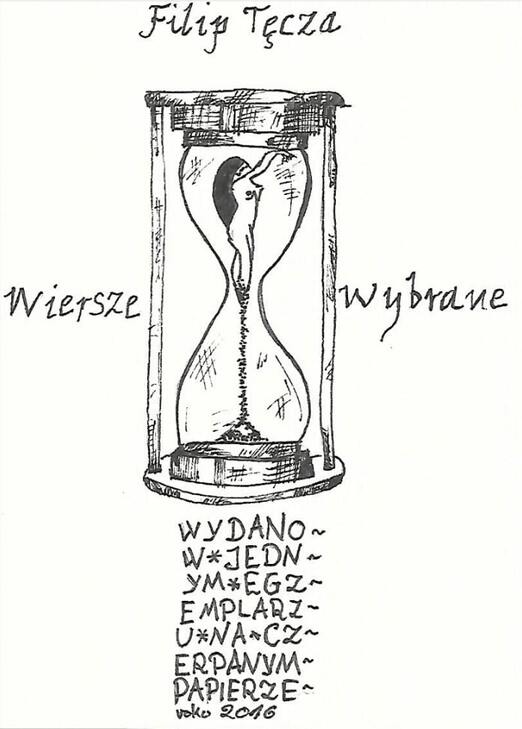 Filip Tęcza
Wiersze Wybrane
WYDANO~
W*JEDN~
YM*EGZ~
EMPLARZ~
U*NA*CZ~
ERPANYM~
PAPIERZE~
roku 2016